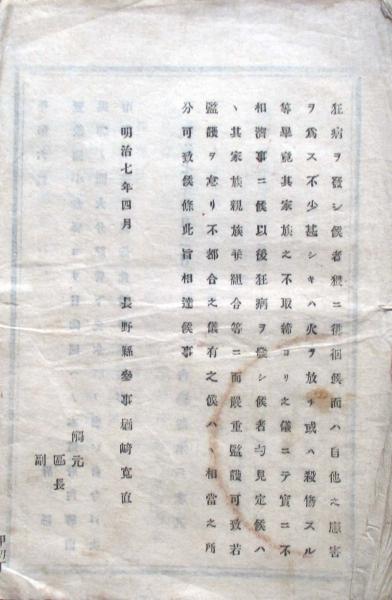 狂病ヲ發シ候者猥ニ徘徊候而ハ自他之障害
ヲ爲ス不少甚シキハ火ヲ放チ或ハ殺傷スル
等畢竟其家族之不取締ヨリ之儀ニテ實ニ不
相濟事ニ候以後狂病ヲ發シ候者ト見定候ハ
ヽ其家族親族幷組合等ニ而嚴重監護可致若
監護ヲ怠リ不都合之儀有之候ハヽ相當之所
分可致候條此旨相達候事
明治七年四月　長野縣參事楢崎寛直
觸元
區長
副